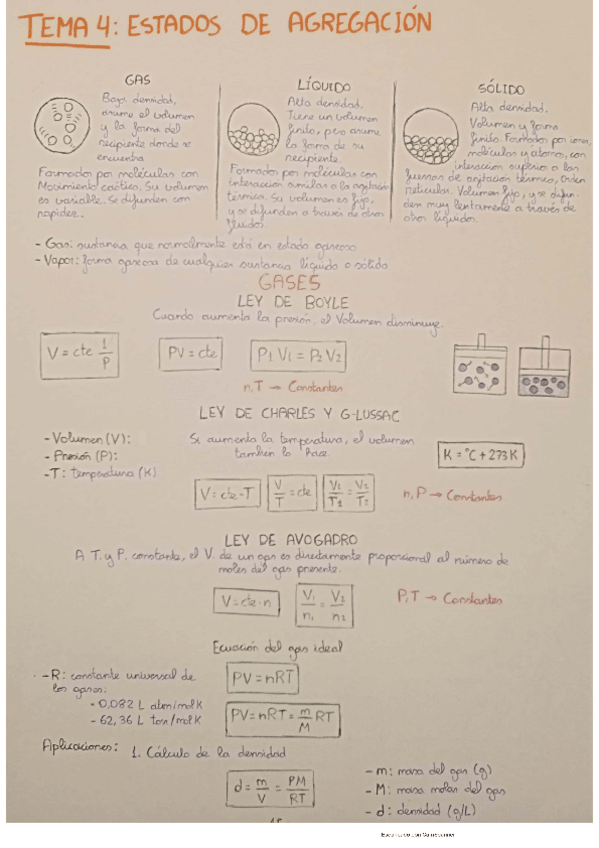 TEMA 4: ESTADOS DE AGREGACIÓN
GAS
Baja densidad,
asume el volumen
y la forma del
recipiente donde se
encuentra
Formados por moléculas con
Movimiento caótico. Su volumen
es variable. Se difunden con
rapidez.
LÍQUIDO
Alta densidad.
Tiene un volumen
finito, pero asume
la forma de su
recipiente.
Formados por moléculas con
interacción similar a la agitación
térmica. Su volumen es fijo,
y se difunden a través de otros
fluidos.
SÓLIDO
Alta densidad.
Volumen y forma
finitos. Formados por iones,
moléculas y átomos, con
interacción superior a las
fuerzas de agitación térmica, Orden
reticular. Volumen fijo, y se difun-
den muy lentamente a través de
otros líquidos.
- Gas: sustancia que normalmente está en estado gaseoso
- Vapor: forma gaseosa de cualquier sustancia líquido o sólido
GASES
LEY DE BOYLE
Cuando aumenta la presión, el Volumen disminuye.
V = cte 1/P
PV = cte
P1 V1 = P2 V2
n,T → Constantes
LEY DE CHARLES Y G-LUSSAC
- Volumen (V):
- Presión (P):
- T: temperatura (K)
Si aumenta la temperatura, el volumen
tambien lo hace.
K = °C + 273 K
V = cte · T
V/T = cte
V1/T1 = V2/T2
n,P → Constantes
LEY DE AVOGADRO
A T. y P. constante, el V. de un gas es directamente proporcional al número de
moles del gas presente.
V = cte · n
V1/n1 = V2/n2
P,T → Constantes
Ecuación del gas ideal
- R: constante universal de
los gases:
- 0,082 L atm/mol K
- 62,36 L torr/mol K
PV = nRT
PV = nRT = m/M RT
Aplicaciones: 1. Cálculo de la densidad
d = m/V = PM/RT
- m: masa del gas (g)
- M: masa molar del gas
- d: densidad (g/L)